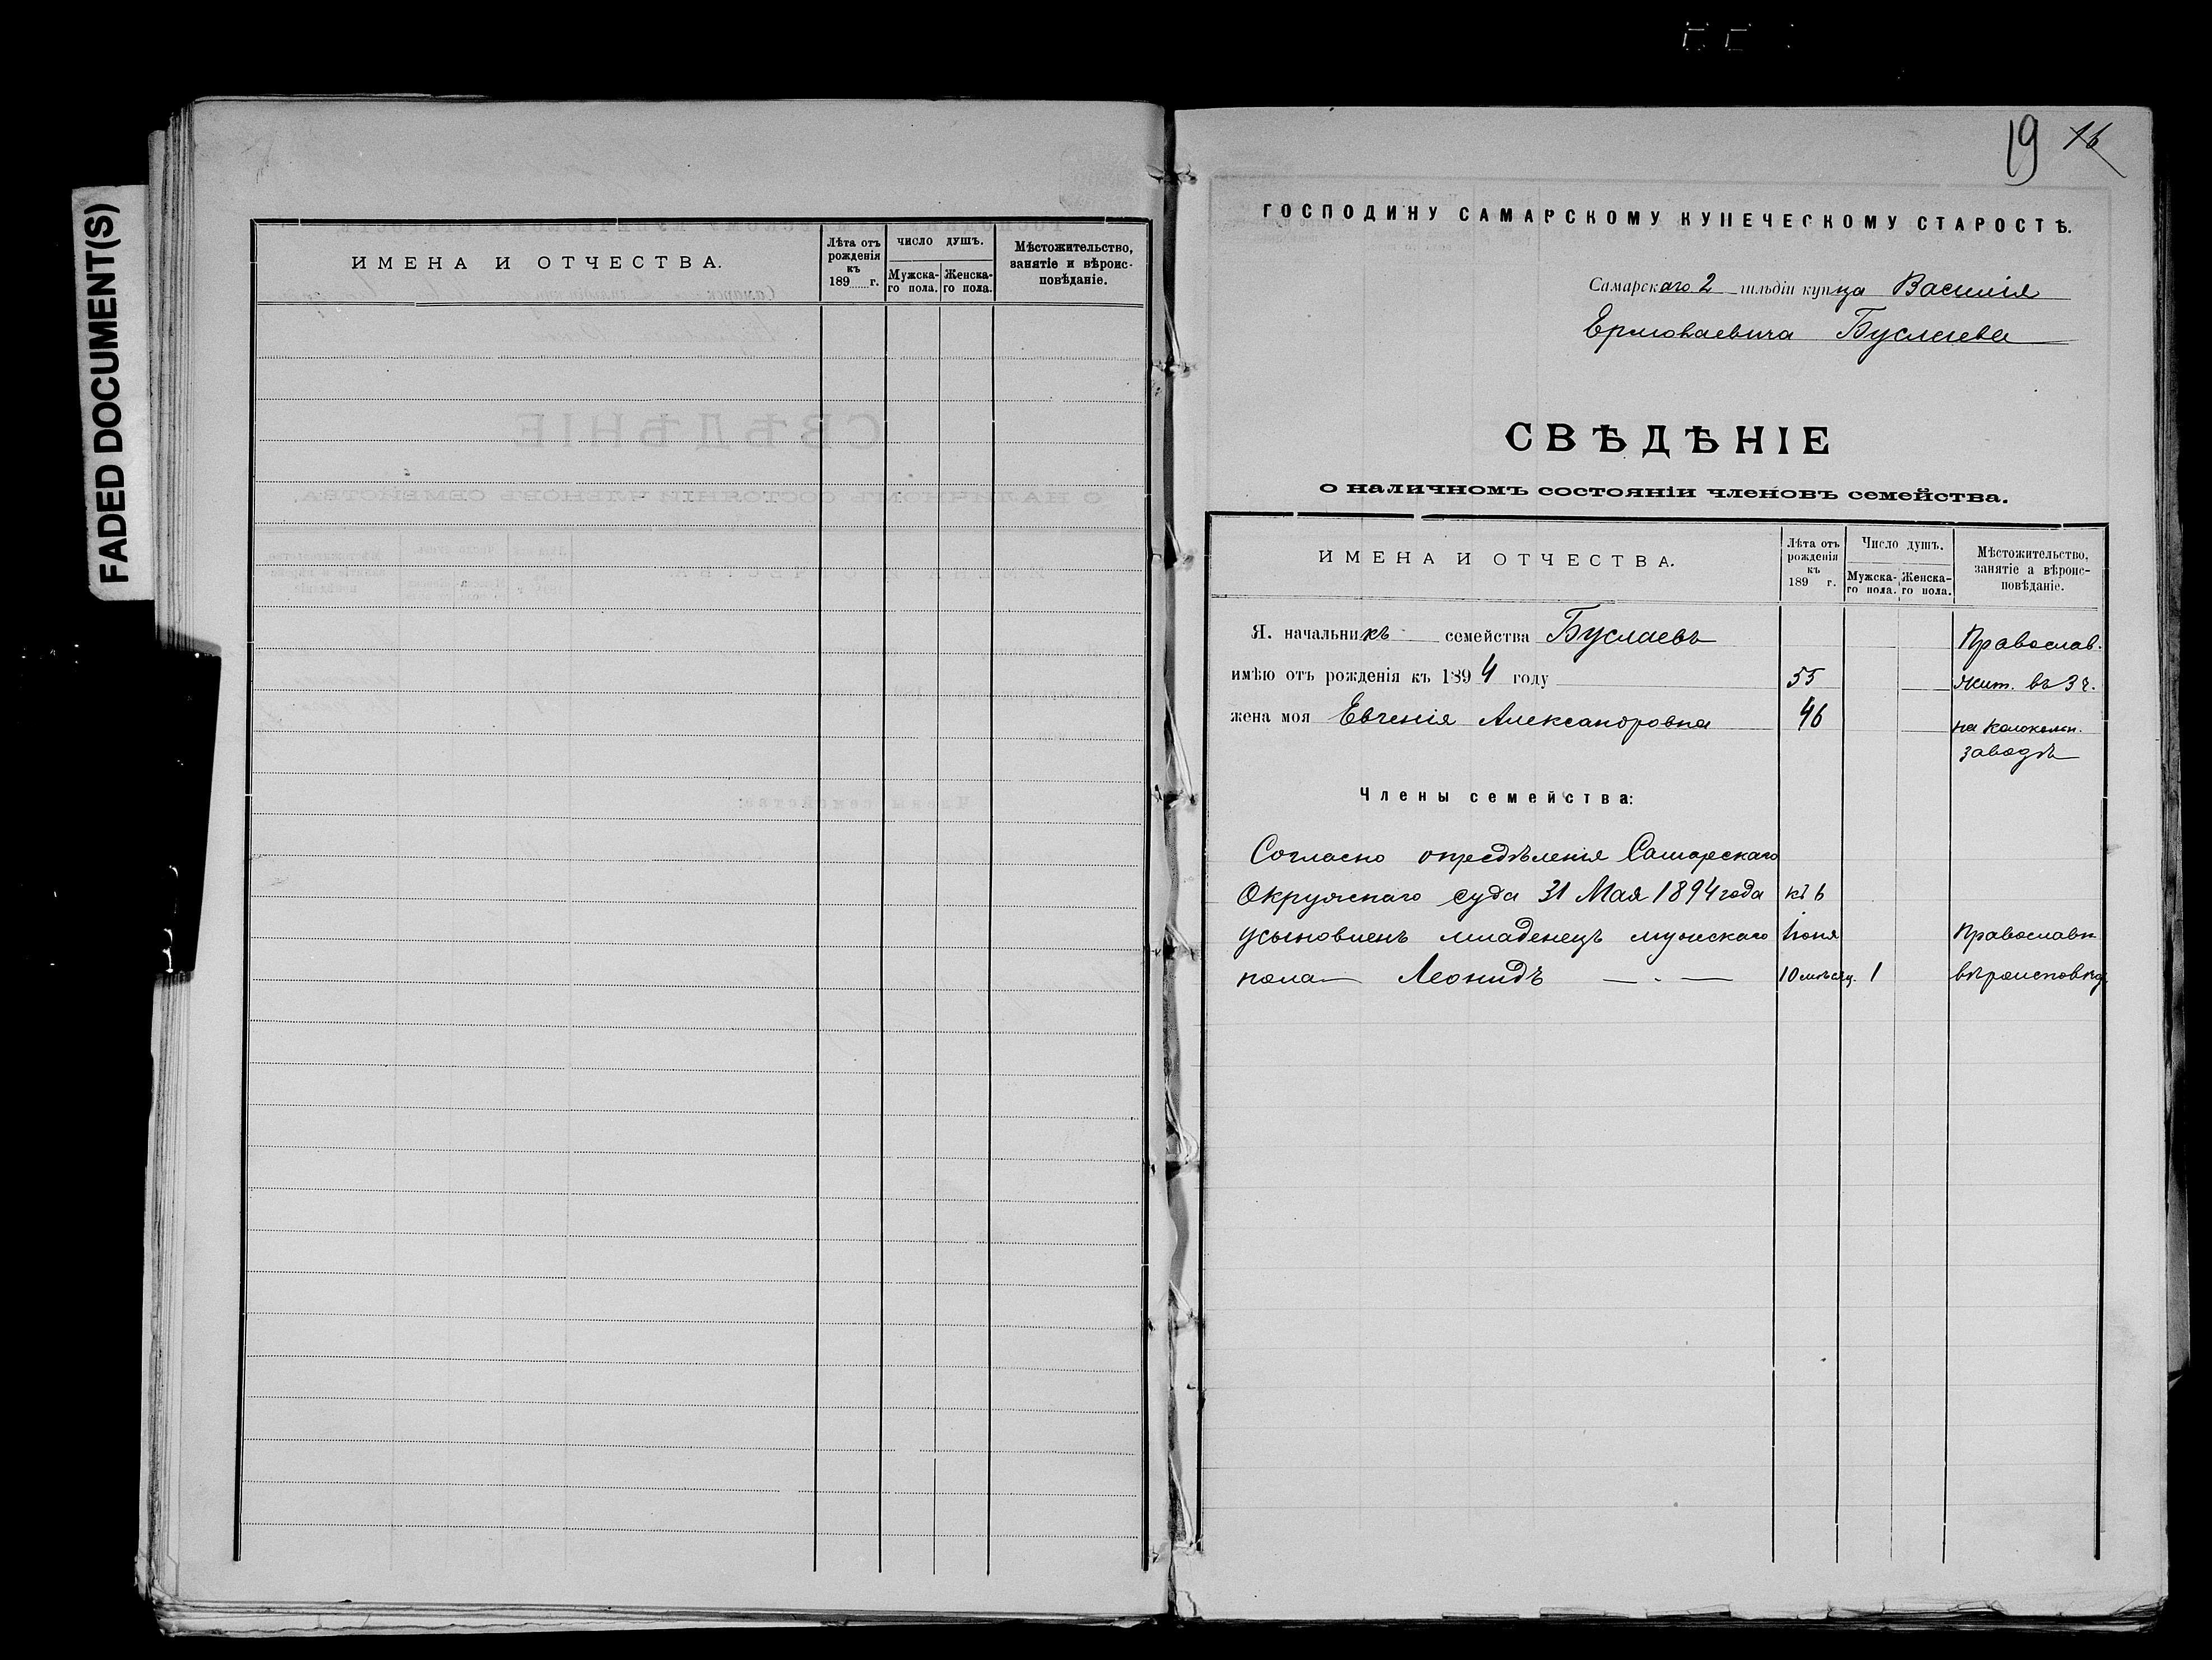 FADED DOCUMENT(S)
ИМЕНА И ОТЧЕСТВА.
Лѣта отъ рожденія къ 189 г.
число душъ.
Мужска-го пола.
Женска-го пола.
Мѣстожительство, занятіе и вѣроис-повѣданіе.
19 16
ГОСПОДИНУ САМАРСКОМУ КУПЕЧЕСКОМУ СТАРОСТѢ.
Самарскаго 2 гильдіи купца Василія
Ермолаевича Буслаева
СВѢДѢНІЕ
о наличномъ состояніи членовъ семейства.
ИМЕНА И ОТЧЕСТВА.
Лѣта отъ рожденія къ 189 г.
Число душъ.
Мужска-го пола.
Женска-го пола.
Мѣстожительство, занятіе а вѣроис-повѣданіе.
Я. начальникъ семейства Буслаевъ Православ.
имѣю отъ рожденія къ 1894 году 55 жит. въ 3 ч.
жена моя Евгенія Александровна 46 на Колокольн.
заводѣ
Члены семейства:
Согласно опредѣленія Самарскаго
Окружнаго суда 31 Мая 1894 года къ 6
усыновленъ младенецъ мужскаго Іюня Православн
пола Леонидъ 10 мѣсяц. 1 вѣроисповѣд.